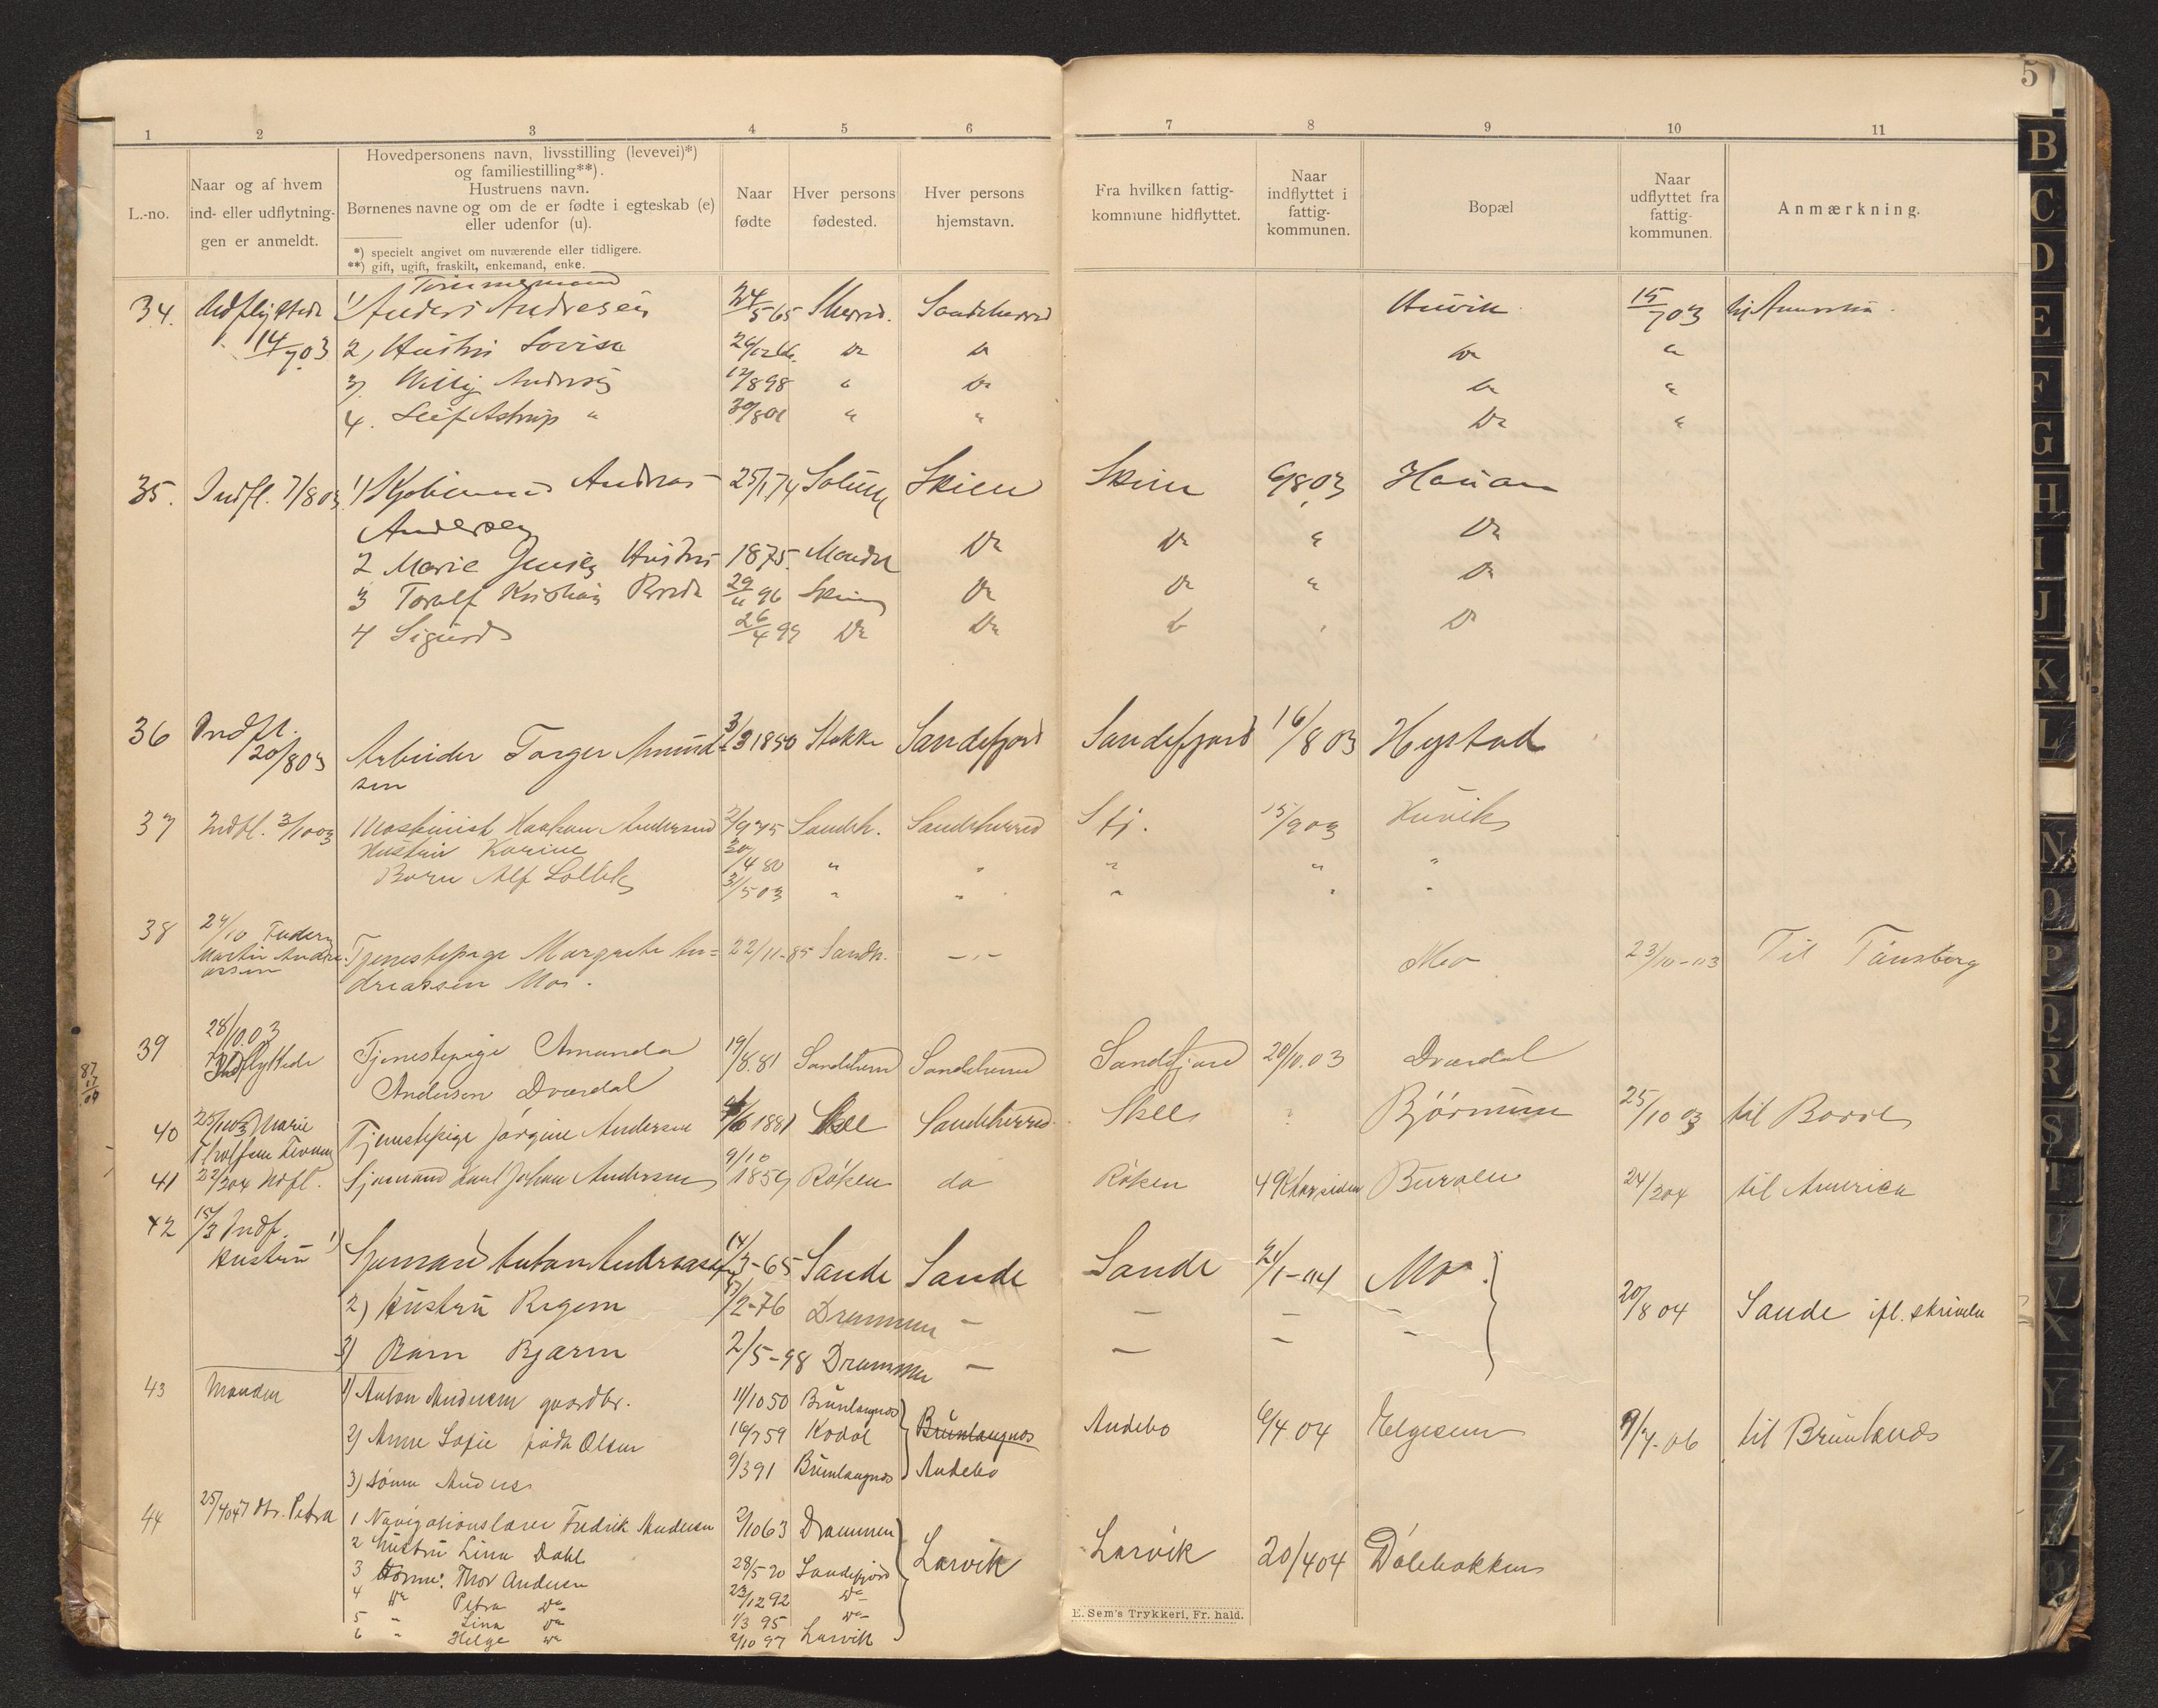 5
1 2 3 4 5 6 7 8 9 10 11
L.-no.
Naar og af hvem
ind- eller udflytnin-
gen er anmeldt.
Hovedpersonens navn, livsstilling (levevei)*)
og familiestilling**).
Hustruens navn.
Børnenes navne og om de er fødte i egteskab (e)
eller udenfor (u).
*) specielt angivet om nuværende eller tidligere.
**) gift, ugift, fraskilt, enkemand, enke.
Naar
fødte
Hver persons
fødested.
Hver persons
hjemstavn.
Fra hvilken fattig-
kommune hidflyttet.
Naar
indflyttet i
fattig-
kommunen.
Bopæl
Naar
udflyttet fra
fattig-
kommunen.
Anmærkning.
Tømmermand
34. Udflyttede 1) Anders Andresen 24/5 65 Sherred. Sandeherred Huvik 15/7 03 til Amerika.
14/7 03 2, Hustru Lovise Do Do Do "
3, Willy Andersen 12/8 98 " Do Do "
4. Leif Astrup " 30/8 01 " " Do "
35. Indfl. 7/8 03 1) Andreas 25/1 74 Solum Skien Skien 6/8 03 Hauan
Andersen
2 Marie Jensen Hustru 1875. Mandal Do Do " Do
3 Toralf Kristian 29/11 96 Skien Do Do " Do
4 Sigurd 26/4 99 Do Do Do " Do
36 Indfl. 20/8 03 Arbeider Torger Amund- 3/3 1850 Stokke Sandefjord Sandefjord 16/8 03 Hystad
sen
37 Indfl. 3/10 03 Maskinist Haakon Andersen 2/9 75 Sandeh. Sandeherred Sfj. 15/9 03 Huvik
Hustru Karine 20/4 80 " " " " "
Barn Alf 3/5 03 " " " " "
38 29/10 Faderen
Martin Andre-
assen Tjenestepige Margrete An= 22/11-85 Sandh. -"- Mo 23/10-03 Til Tønsberg
dreassen Mo.
39 28/10.03
Indflyttede Tjenestepige Amanda 19/8.81 Sandeherred Sandeherred Sandefjord 20/10.03 Dverdal
Andersen Dverdal
40 25/10 03 Marie Tjenestepige Jørgine Andersen 4/6 1881 Skee Sandeherred Skee ? Bjørnum 25/10 03 til Borre
41 22/2 04 Udfl. Sjømand Karl Johan Andersen 9/10 1859 Røken do Røken 49 aar siden Buraen 24/2 04 til Amerika
42 15/3 Indf.
Hustru 1) Sjømand Anton Andreassen 14/3-65 Sande Sande Sande 2/1-04 Mo. 20/8 04 Sande ifl. skrivelse
2) Hustru Regine /2-76 Drammen — — — —
3) Barn Bjarne 2/5-98 Drammen — — — —
43 Manden 1) Anton Andersen gaardbr. 11/10 50 Brunlaugnes Brunlaugnes Andebo 6/4 04 Elgesem 9/4-06 til Brunlanes
2) Anne Sofie født Olsen 16/7 59 Kodal
3) sønn Anders 9/3 91 Brunlaugnes Andebo
44 25/4 04 Dtr. Petra 1 Navigationslærer Fredrik Andersen 2/10 63 Drammen Larvik Larvik 20/4 04 Dølebakken
2 Hustru Lina Dahl 28/5 70 Sandefjord
3 Thor Andersen 23/12 92 Do
4 Do Petra Do 1/3 95 Do
5 " Lina Do 2/10 97 Larvik
6 " Helge Do
87
17
09
E. Sem's Trykkeri, Fr. hald.
B
C
D
E
F
G
H
I
J
K
L
N
O
P
Q
R
S
T
U
V
X
Y
Z
Ø